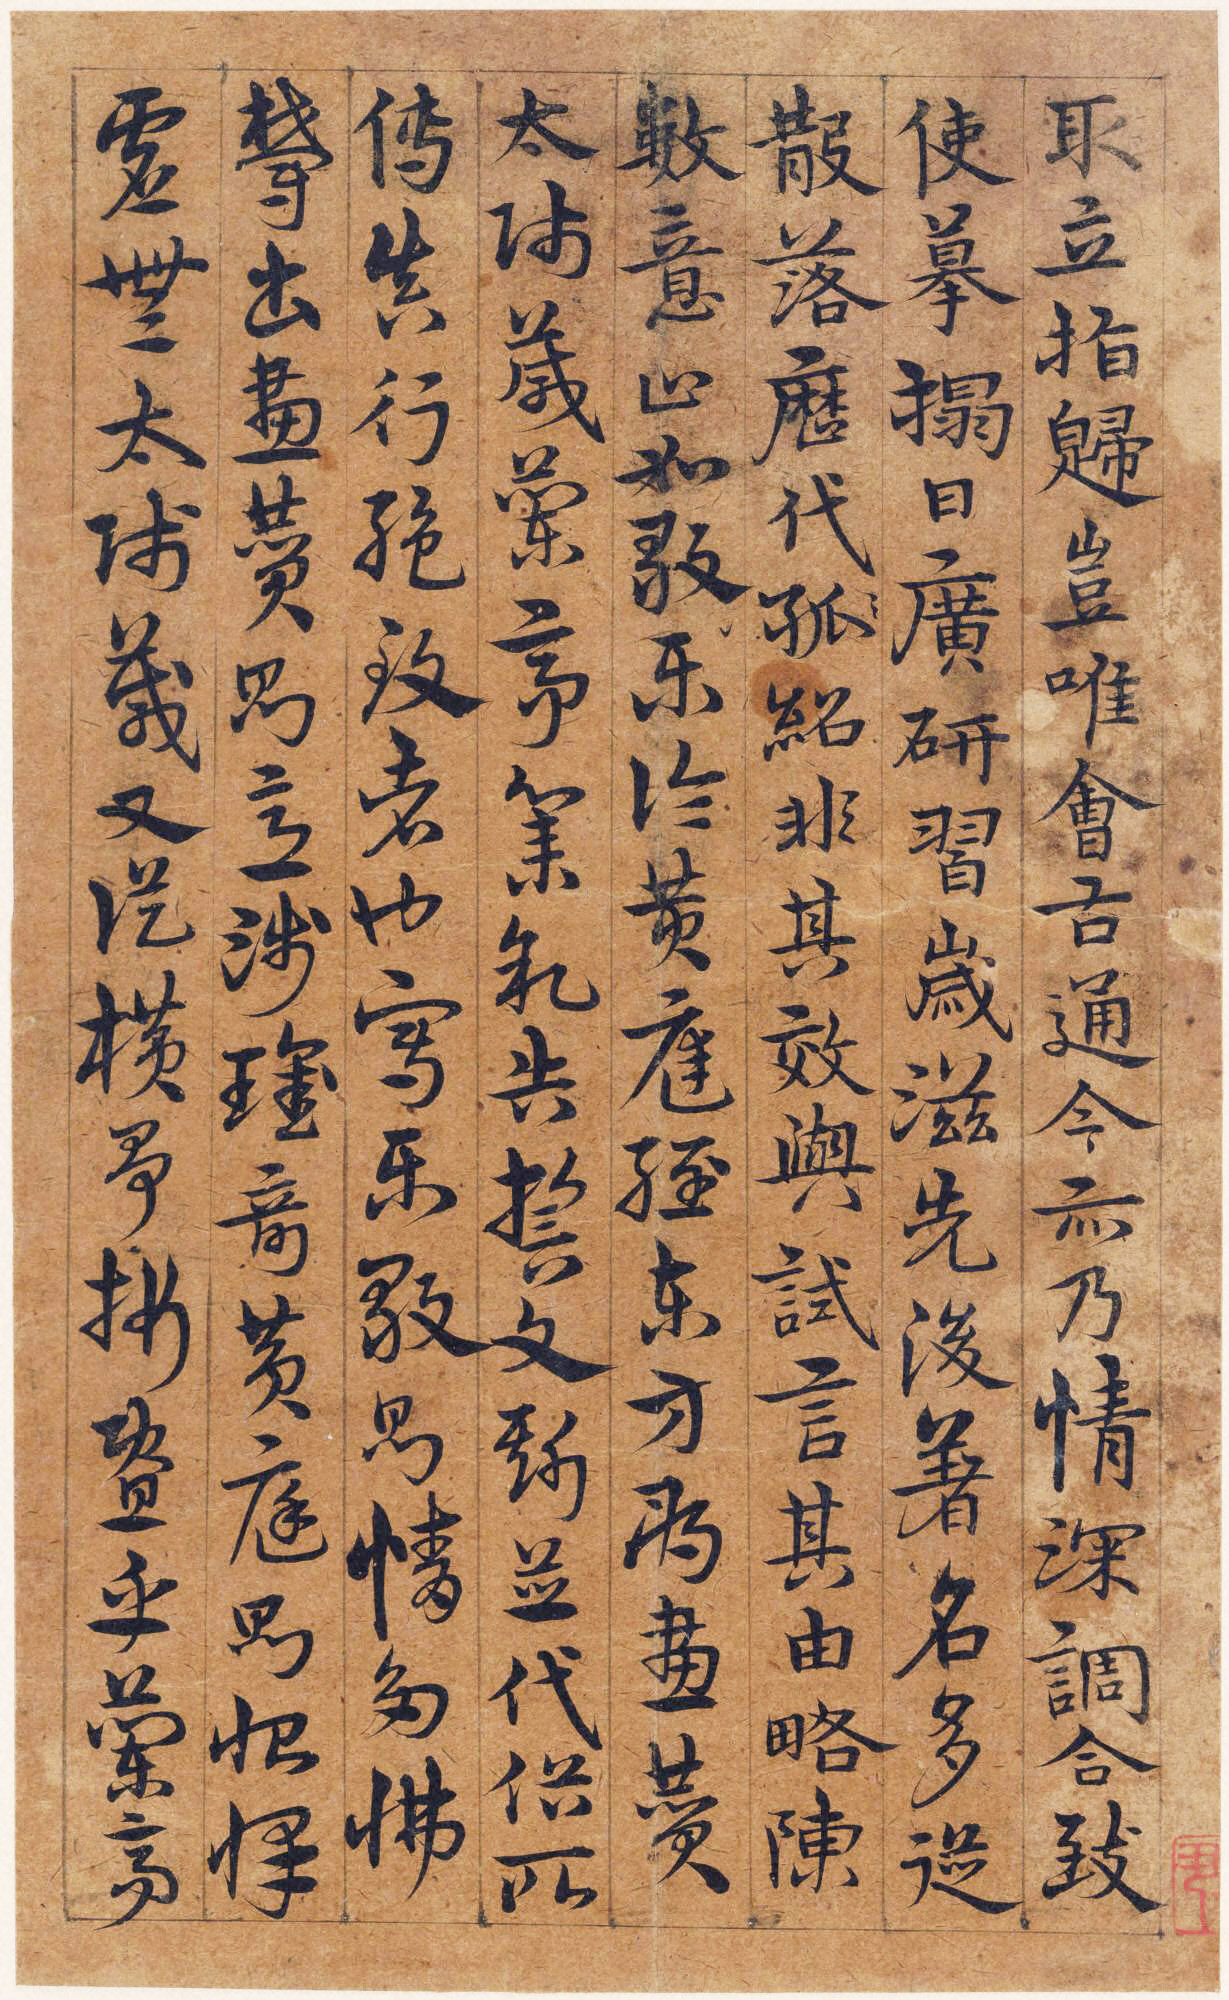 取立指歸豈唯會古通今亦乃情深調合致
使摹搨日廣研習歲滋先後著名多從
散落歷代孤紹非其效與試言其由略陳
數意止如毅樂論黃庭經東方朔畫贊
太師箴蘭亭集序告誓文斯並代俗所
傳真行絕致者也寫樂毅則情多怫
欝書畫贊則意涉瓌奇黃庭則怡懌
虛無太師箴又從橫爭折暨乎蘭亭